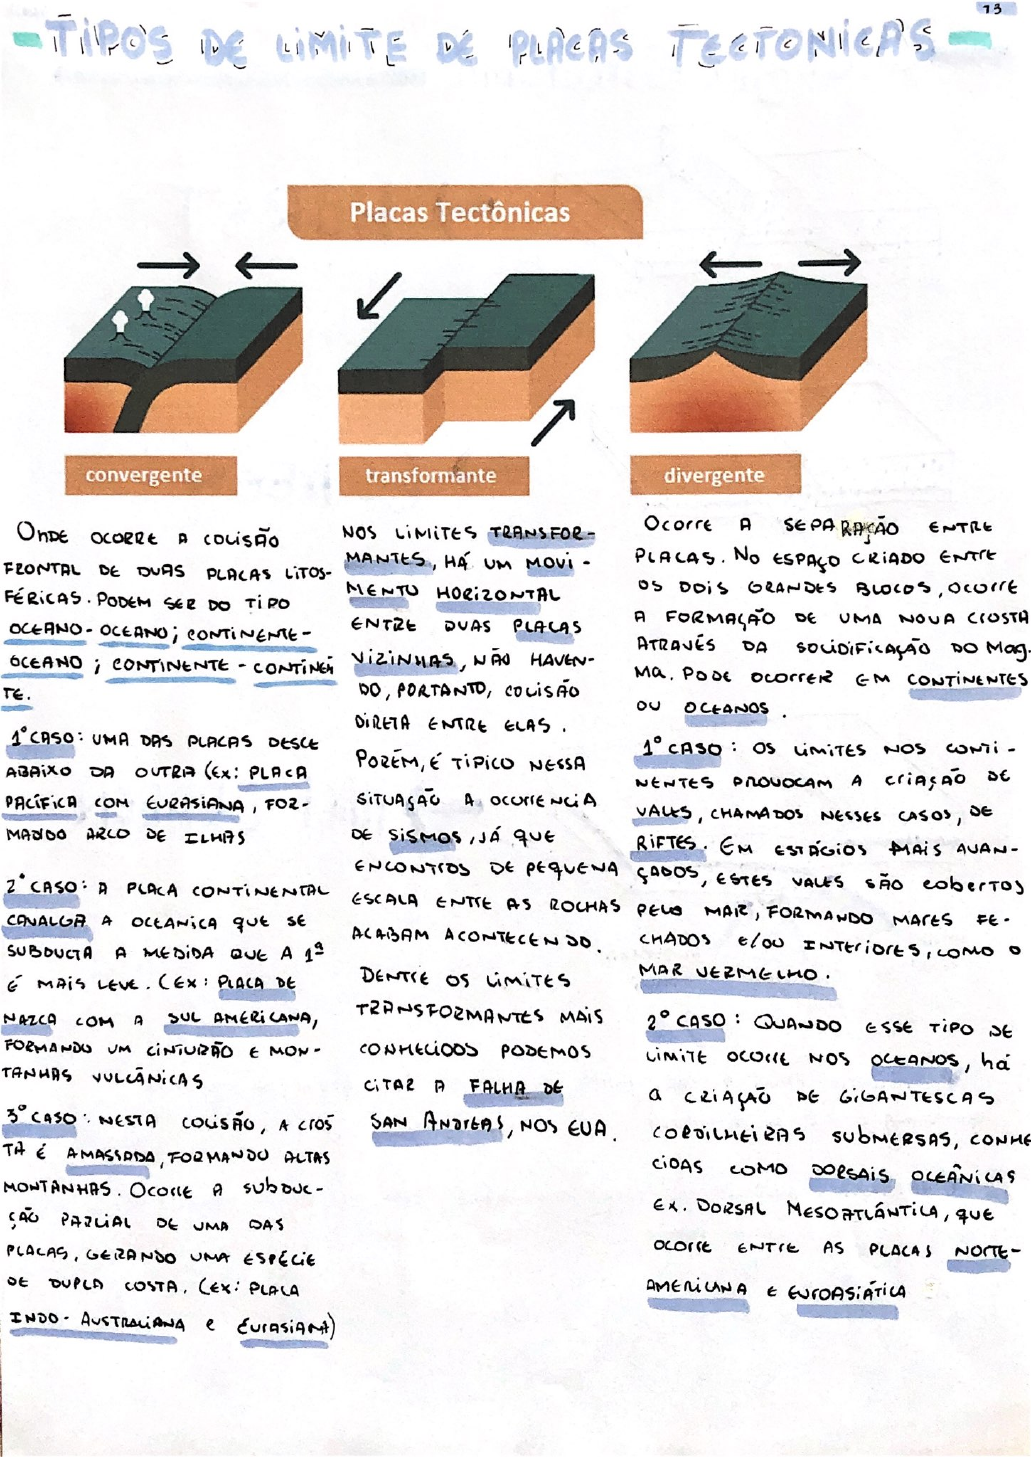 13
TIPOS DE LIMITE DE PLACAS TECTONICAS
Placas Tectônicas
convergente
transformante
divergente
ONDE OCORRE A COLISÃO
FRONTAL DE DUAS PLACAS LITOS-
FÉRICAS. PODEM SER DO TIPO
OCEANO-OCEANO; CONTINENTE-
OCEANO; CONTINENTE-CONTINEN
TE.
1º CASO: UMA DAS PLACAS DESCE
ABAIXO DA OUTRA (EX: PLACA
PACÍFICA COM EURASIANA, FOR-
MANDO ARCO DE ILHAS
2º CASO: A PLACA CONTINENTAL
CAVALGA A OCEANICA QUE SE
SUBDUCTA A MEDIDA QUE A 1ª
É MAIS LEVE. (EX: PLACA DE
NAZCA COM A SUL AMERICANA,
FORMANDO UM CINTURÃO E MON-
TANHAS VULCÂNICAS
3º CASO: NESTA COLISÃO, A CROS
TA É AMASSADA, FORMANDO ALTAS
MONTANHAS. OCORRE A SUBDUC-
ÇÃO PARCIAL DE UMA DAS
PLACAS, GERANDO UMA ESPÉCIE
DE DUPLA COSTA. (EX: PLACA
INDO-AUSTRALIANA e EURASIANA)
NOS LIMITES TRANSFOR-
MANTES, HÁ UM MOVI-
MENTO HORIZONTAL
ENTRE DUAS PLACAS
VIZINHAS, NÃO HAVEN-
DO, PORTANTO, COLISÃO
DIRETA ENTRE ELAS.
PORÉM, É TIPICO NESSA
SITUAÇÃO A OCORRENCIA
DE SISMOS, JÁ QUE
ENCONTROS DE PEQUENA
ESCALA ENTRE AS ROCHAS
ACABAM ACONTECENDO.
DENTRE OS LIMITES
TRANSFORMANTES MAIS
CONHECIDOS PODEMOS
CITAR A FALHA DE
SAN ANDREAS, NOS EUA.
OCORRE A SEPARAÇÃO ENTRE
PLACAS. NO ESPAÇO CRIADO ENTRE
OS DOIS GRANDES BLOCOS, OCORRE
A FORMAÇÃO DE UMA NOVA CROSTA
ATRAVÉS DA SOLIDIFICAÇÃO DO MAG-
MA. PODE OCORRER EM CONTINENTES
OU OCEANOS.
1º CASO: OS LIMITES NOS CONTI-
NENTES PROVOCAM A CRIAÇÃO DE
VALES, CHAMADOS NESSES CASOS, DE
RIFTES. EM ESTÁGIOS MAIS AVAN-
ÇADOS, ESTES VALES SÃO COBERTOS
PELO MAR, FORMANDO MARES FE-
CHADOS E/OU INTERIORES, COMO O
MAR VERMELHO.
2º CASO: QUANDO ESSE TIPO DE
LIMITE OCORRE NOS OCEANOS, há
a CRIAÇÃO DE GIGANTESCAS
CORDILHEIRAS SUBMERSAS, CONHE
CIDAS COMO DORSAIS OCEÂNICAS
EX. DORSAL MESOATLÂNTICA, QUE
OCORRE ENTRE AS PLACAS NORTE-
AMERICANA E EUROASIÁTICA